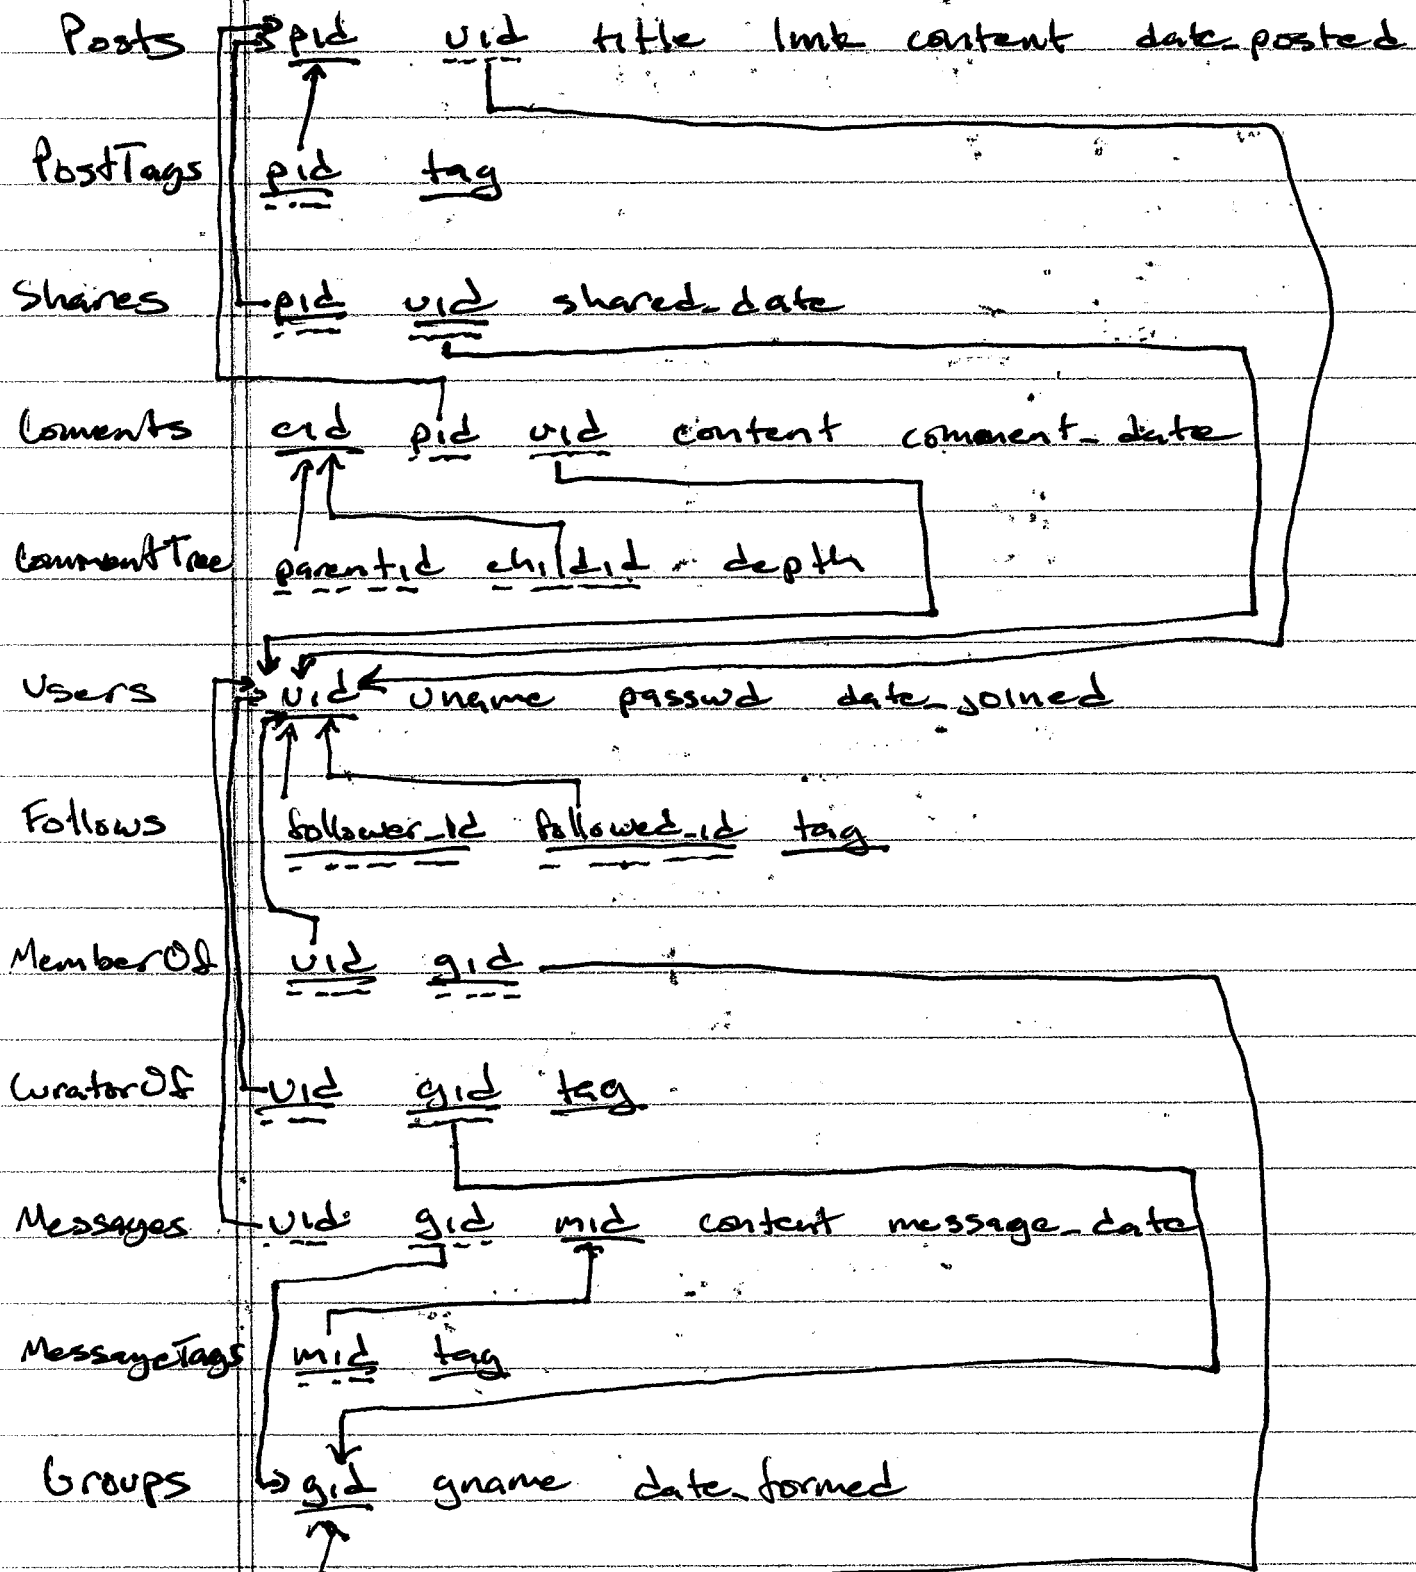 Posts pid uid title link content date_posted
PostTags pid tag
Shares pid uid shared_date
Coments cid pid uid content comment_date
CommentTree parentid childid depth
Users uid uname passwd date_joined
Follows follower_id followed_id tag
MemberOf uid gid
CuratorOf uid gid tag
Messages uid gid mid content message_date
MessageTags mid tag
Groups gid gname date_formed